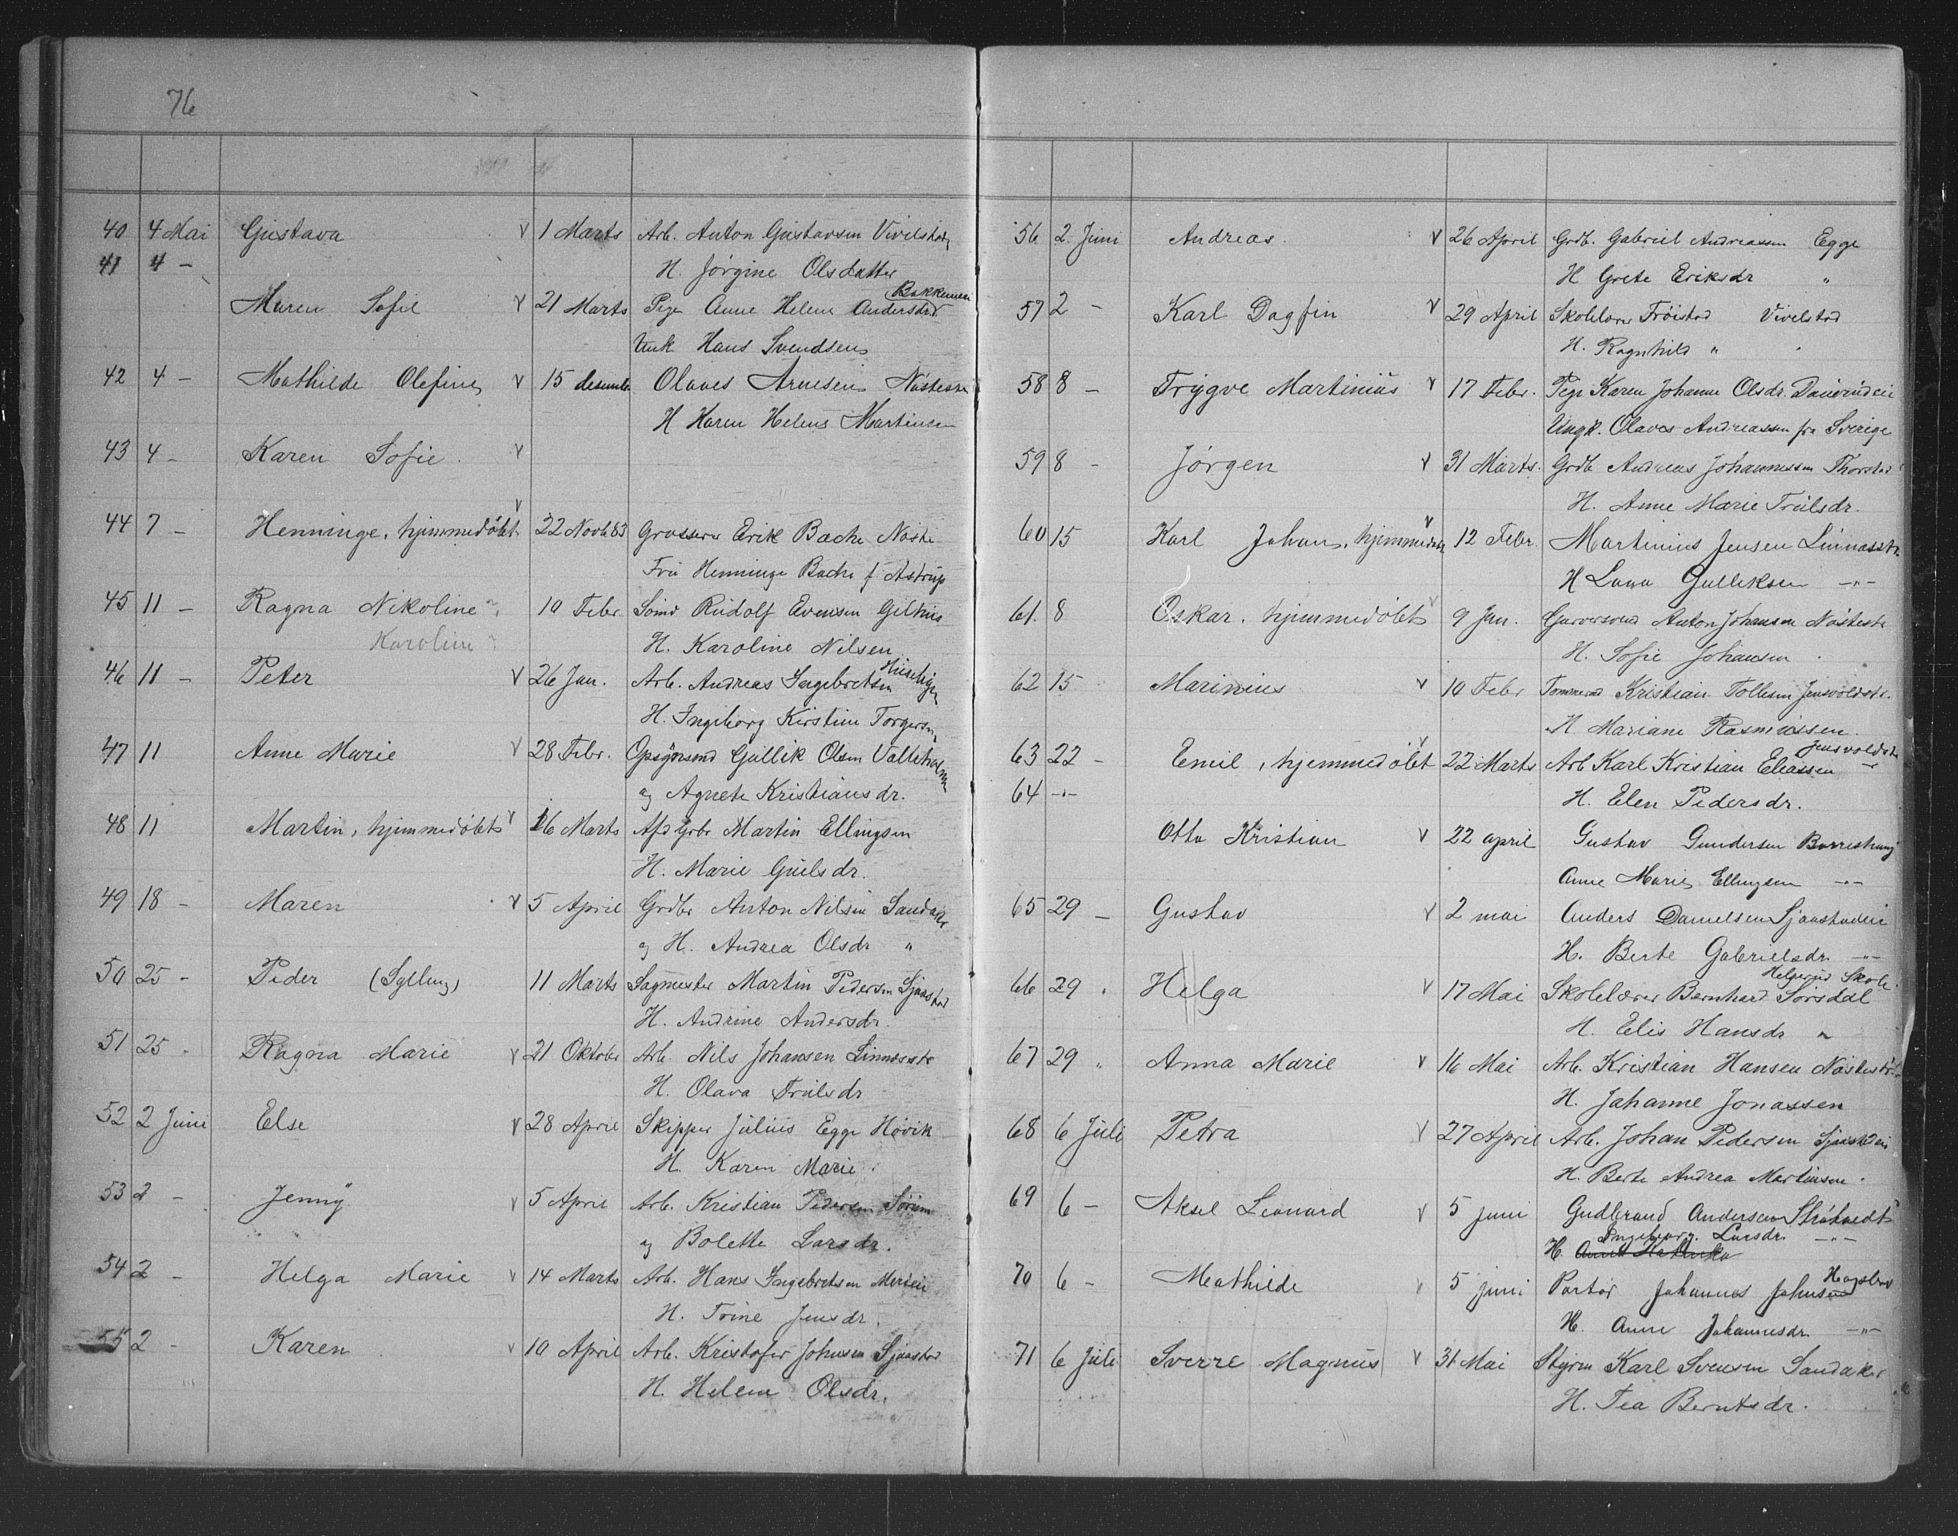 76
40 4 Mai Gustava v 1 Marts Arb. Anton Gustavsen Vivelstad
41 4 - H. Jørgine Olsdatter
Bakkemeen
Maren Sofie v 21 Marts Pige Anne Helene Andersdtr
Unk Hans Svendsen
42 4 - Mathilde Olefine v 15 desemb Olaves Arnesen Nöstestr
H Karen Helene Martinsen
43 4 - Karen Sofie v
44 7 - Henninge, hjemmedöbt v 22 Novb 83 Grosserer Erik Bache Nöste
Fru Henninge Bache f. Astrup
45 11 - Ragna Nikoline 10 Febr. Smed Rudolf Evensen Gilhus
Karoline? H. Karoline Nilsen
46 11 - Peter v 26 Jan. Arb. Andreas Ingebretsen
H. Ingeborg Kirstine Torgersn
47 11 Anne Marie v 28 Febr. Gullik Olsen
og Agnete Kristiansdr.
48 11 Martin, hjemmedöbt v 16 Marts Martin Ellingsen
H. Marie
49 18 - Maren v 5 April Grdbr Anton Nilsen Sandaker
og H. Andrea Olsdr "
50 25 - Peder (Sylling) 11 Marts Sagmester Martin Pedersen Sjaastad
H. Andrine Andersdr.
51 25 - Ragna Marie v 21 Oktober Arb. Nils Johansen Linnesstr
H. Olava Trulsdr
52 2 Juni Else v 28 April Skipper Julius Egge Høvik
H. Karen Marie
53 2 - Jenny v 5 April Arb. Kristian Pedersen Sørum
og Bolette Larsdr.
54 2 - Helga Marie v 14 Marts Arb. Hans Ingebretsen
H. Trine Jensdr.
55 2 - Karen v 10 April Arb. Kristofer Johnsen Sjaastad
H. Helene Olsdr.
56 2 Juni Andreas v 26 April Grdb. Gabriel Andreassen Egge
H Grete Eriksdr "
57 2 - Karl Dagfin v 29 April Skolelærer Fröistad Vivelstad
H. Ragnhild "
58 8 - Trygve Martinius v 17 Febr. Pige Karen Johanne Olsdr.
Ungk. Olaves Andreassen fra Sverige
59 8 - Jörgen v 31 Marts. Grdb Andreas Johannessen Thorstad
H. Anne Marie Trulsdr.
60 15 Karl Johan, hjemmedöbt v 12 Febr Martinius Jensen Linnesstr
H Lava Gulliksen -"-
61. 8 Oskar, hjemmedöbt v 9 Jan. Garversvend Anton Johansen Nöstestr
H. Sofie Johansen
62 15 - Marinius v 10 Febr Tømmermd Kristian Tollesen Jensvoldstr.
H Mariane Rasmussen.
Jensvoldstr
63 22 - Emil, hjemmedöbt v 22 Marts Arb Karl Kristian Eliassen
64 -"- H. Elen Pedersdr.
Otto Kristian v 22 april Gustav Gundersen
Anne Marie Ellingsen -"-
65 29 - Gustav v 2 mai Anders Danielsen Sjaastadeie
H. Berte Gabrielsdr. -"-
Helgerud Skole
66 29 . Helga v 17 Mai Skolelærer Bernhard Sörsdal
H. Elis Hansdr "
67 29 " Anna Marie v 16 Mai Arb. Kristian Hansen Nöstestr
H. Johanne Jonassen
68 6 Juli Petra v 27 April Arb. Johan Pedersen
H. Berte Andrea Martinsen.
69 6 - Aksel Leonard v 5 juni Gudbrand Andersen
Ingeborg. Larsdr. -"-
H.
70 6 - Mathilde v 5 juni Portör Johannes Johnsen
H. Anne Johannesdr. -"-
71 6 Juli Sverre Magnus v 31 Mai Styrm Karl Svensen Sandaker
H. Tea Berntsdr.